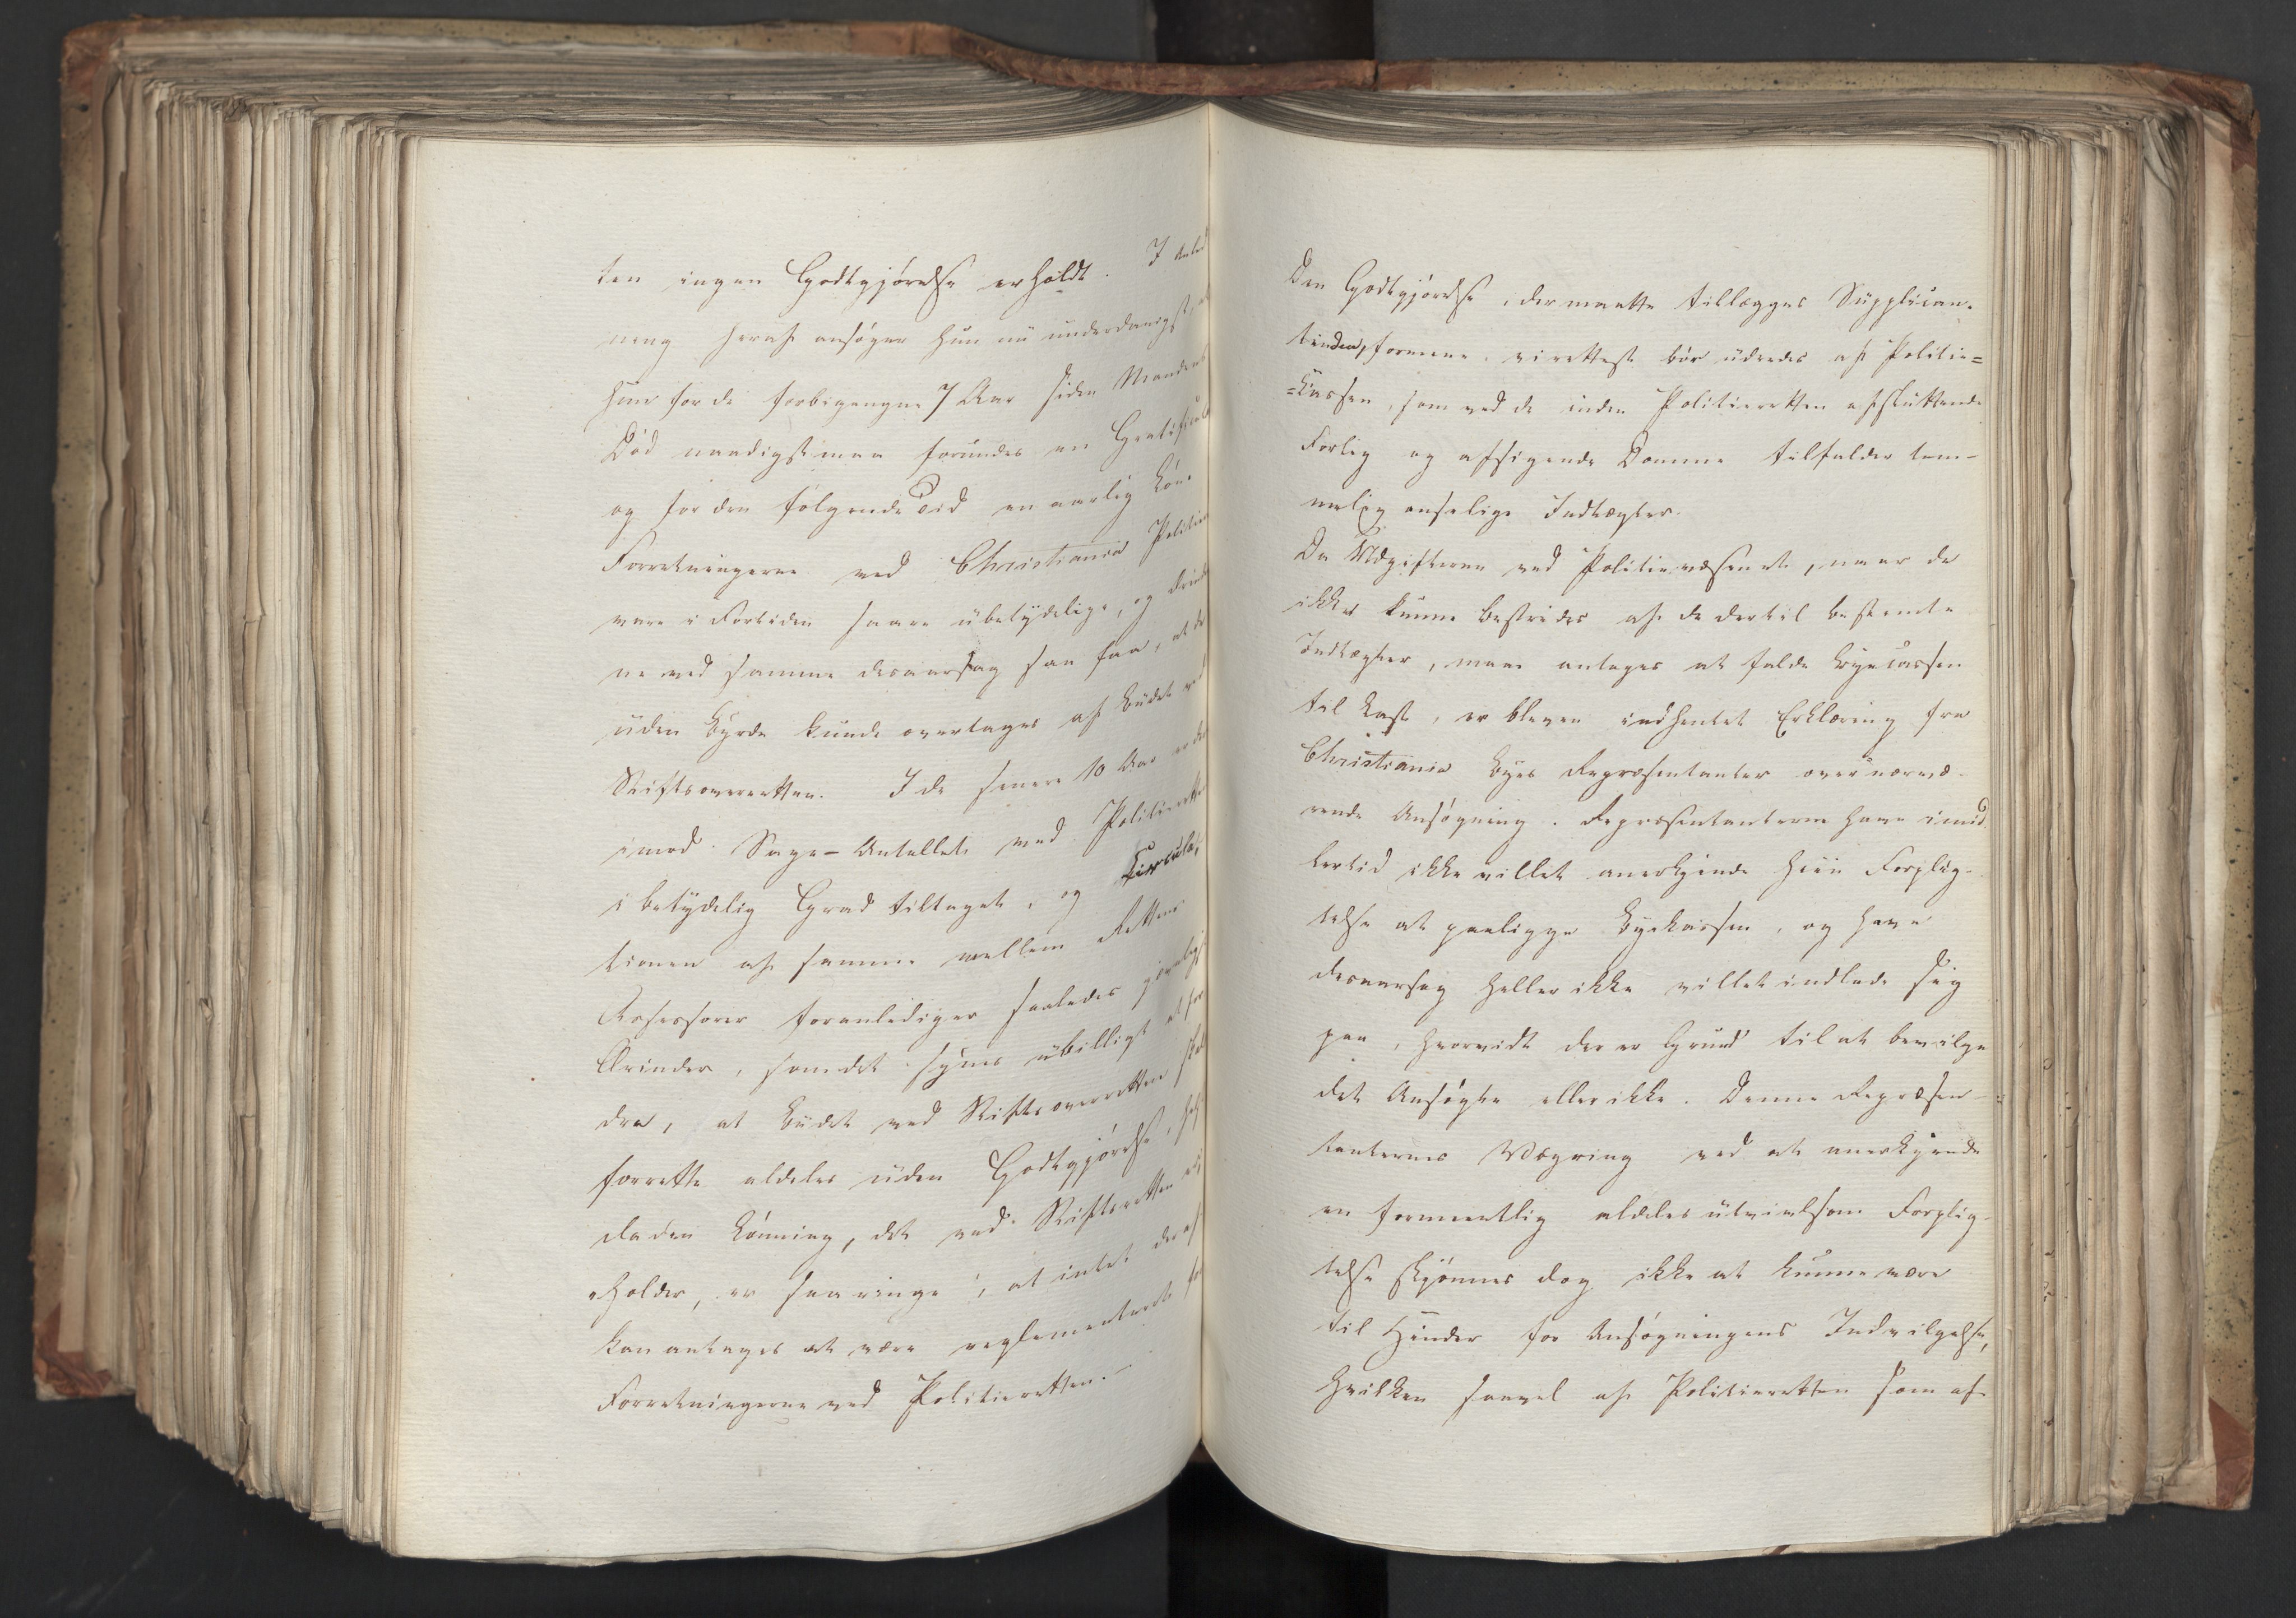 ten ingen Godtgjörelse erholdt. I Anled
ning heraf ansöger hun nu underdanigst, at
hun for de forbigangne 7 Aar siden Mandens
Död naadigst maa forundes en Gratificat
og for den fölgende Tid en aarlig Lön.
Forretningerne ved Christiania Politie
vare i Fortiden saare ubetydelige, og Ærinder
ne ved samme desaarsag saa faa, at de
uden Byrde kunde overtages af Budet ved
Stiftsoverretten. I de senere 10 Aar er der
imod Sags-Antallet ved Politieretten
i betydelig Grad tiltaget, og Circula-
tionen af samme mellem Rettens
Assessorer foranlediger saaledes jævnlig
Ærinder, som det synes ubilligt at for
dre, at Budet ved Stiftsoverretten skal
forrette aldeles uden Godtgjörelse, helst
da den Lönning, det ved Stiftsretten er
holder, er saa ringe, at intet deraf
kan antages at være reglementeret for
Forretningerne ved Politieretten.
Den Godtgjörelse, der maatte tillægges Supplican-
tinden, formene vi rettest bör udredes af Politie-
=Kassen, som ved de inden Politieretten afsluttende
Forlig og afsigende Domme tilfalder tem-
melig anselige Indtægter.
Da Udgifterne ved Politievæsenet, naar de
ikke kunne bestrides af de dertil bestemte
Indtægter, maae antages at falde Byecassen
til Last, er bleven indhentet Erklæring fra
Christiania Byes Repræsentanter over nærvæ-
rende Ansögning. Repræsentanterne have imid
lertid ikke villet anerkjende hiin Forplig-
telse at paaligge Byekassen, og have
desaarsag heller ikke villet indlade sig
paa, hvorvidt der er Grund til at bevilge
det Ansögte eller ikke. Denne Repræsen-
tanternes Vægring ved at anerkjende
en formeentlig aldeles utvivlsom Forplig-
telse skjönnes dog ikke at kunne være
til Hinder for Ansögningens Indvilgelse,
hvilken saavel af Politieretten som af